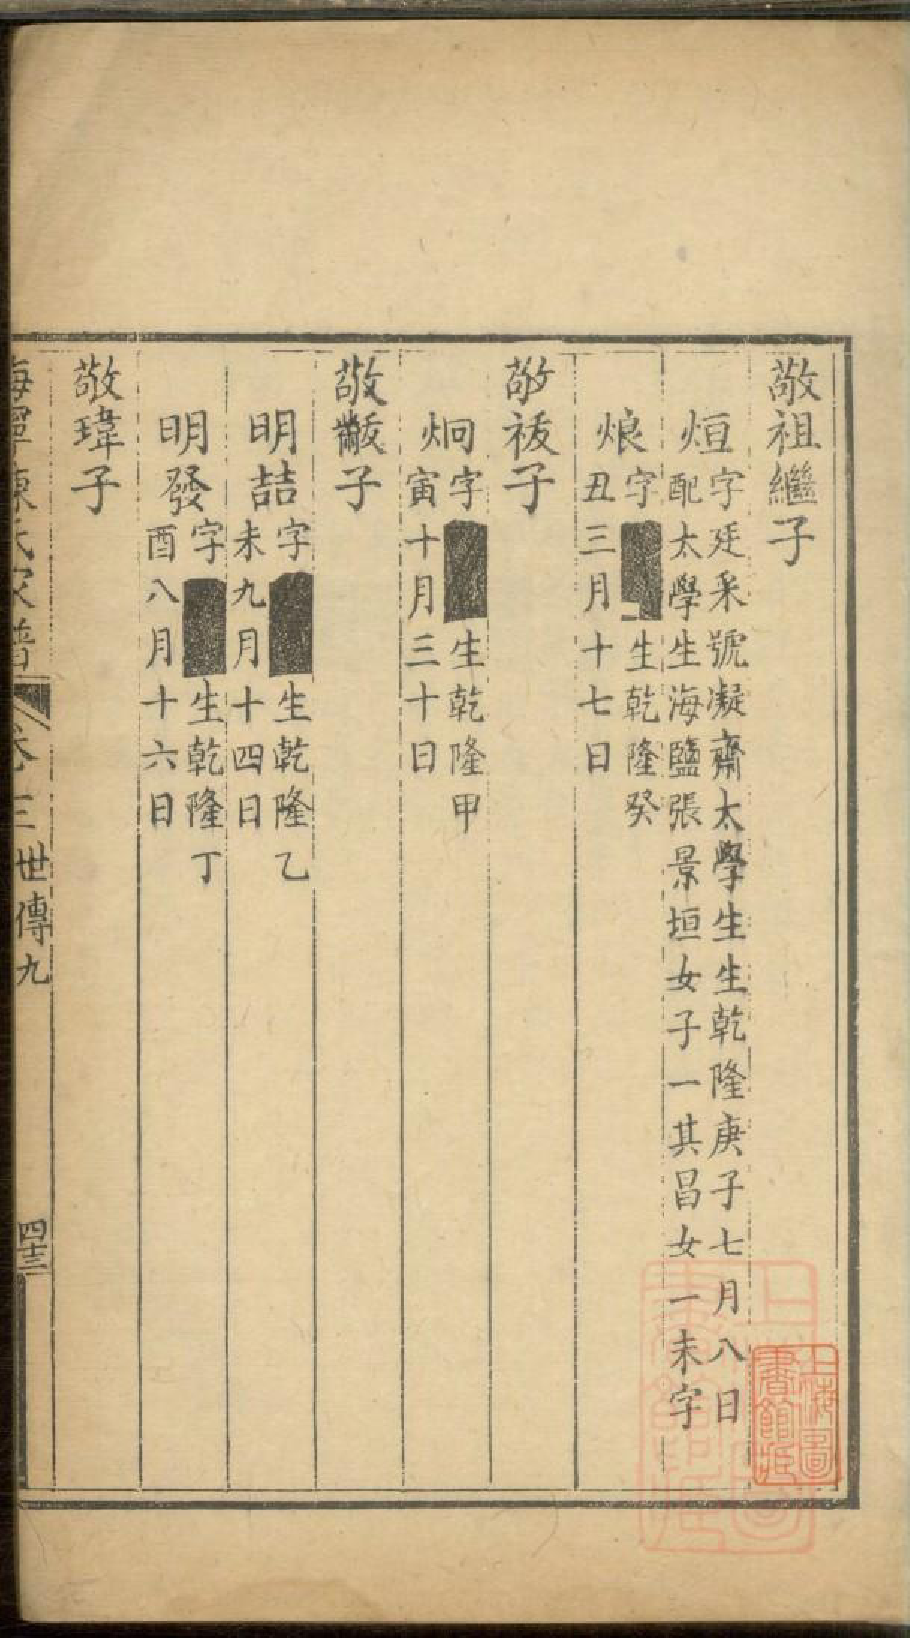 敬祖繼子
烜字廷采號凝齋太學生生乾隆庚子七月八日
配太學生海鹽張景垣女子一其昌女一未字
烺字生乾隆癸
丑三月十七日
敬祓子
炯字生乾隆甲
寅十月三十日
敬黻子
明喆字生乾隆乙
未九月十四日
明發字生乾隆丁
酉八月十六日
敬瑋子
海寧陳氏家譜 卷 三世傳九 四十三
上海圖書館藏